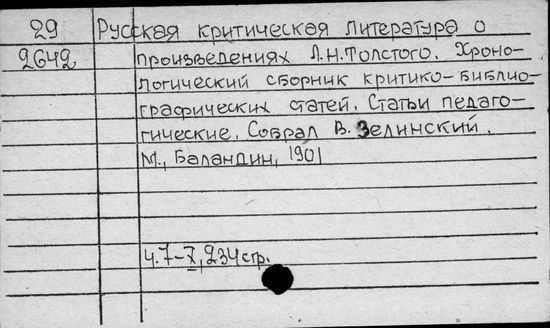 29 Русская критическая литература о
2642 произведениях Л.Н.Толстого. Хроно-
логический сборник критико-библио-
графических статей. Статьи педаго-
гические. Собрал В. Зелинский.
М., Баландин, 1901
Ч.7-X, 234стр.